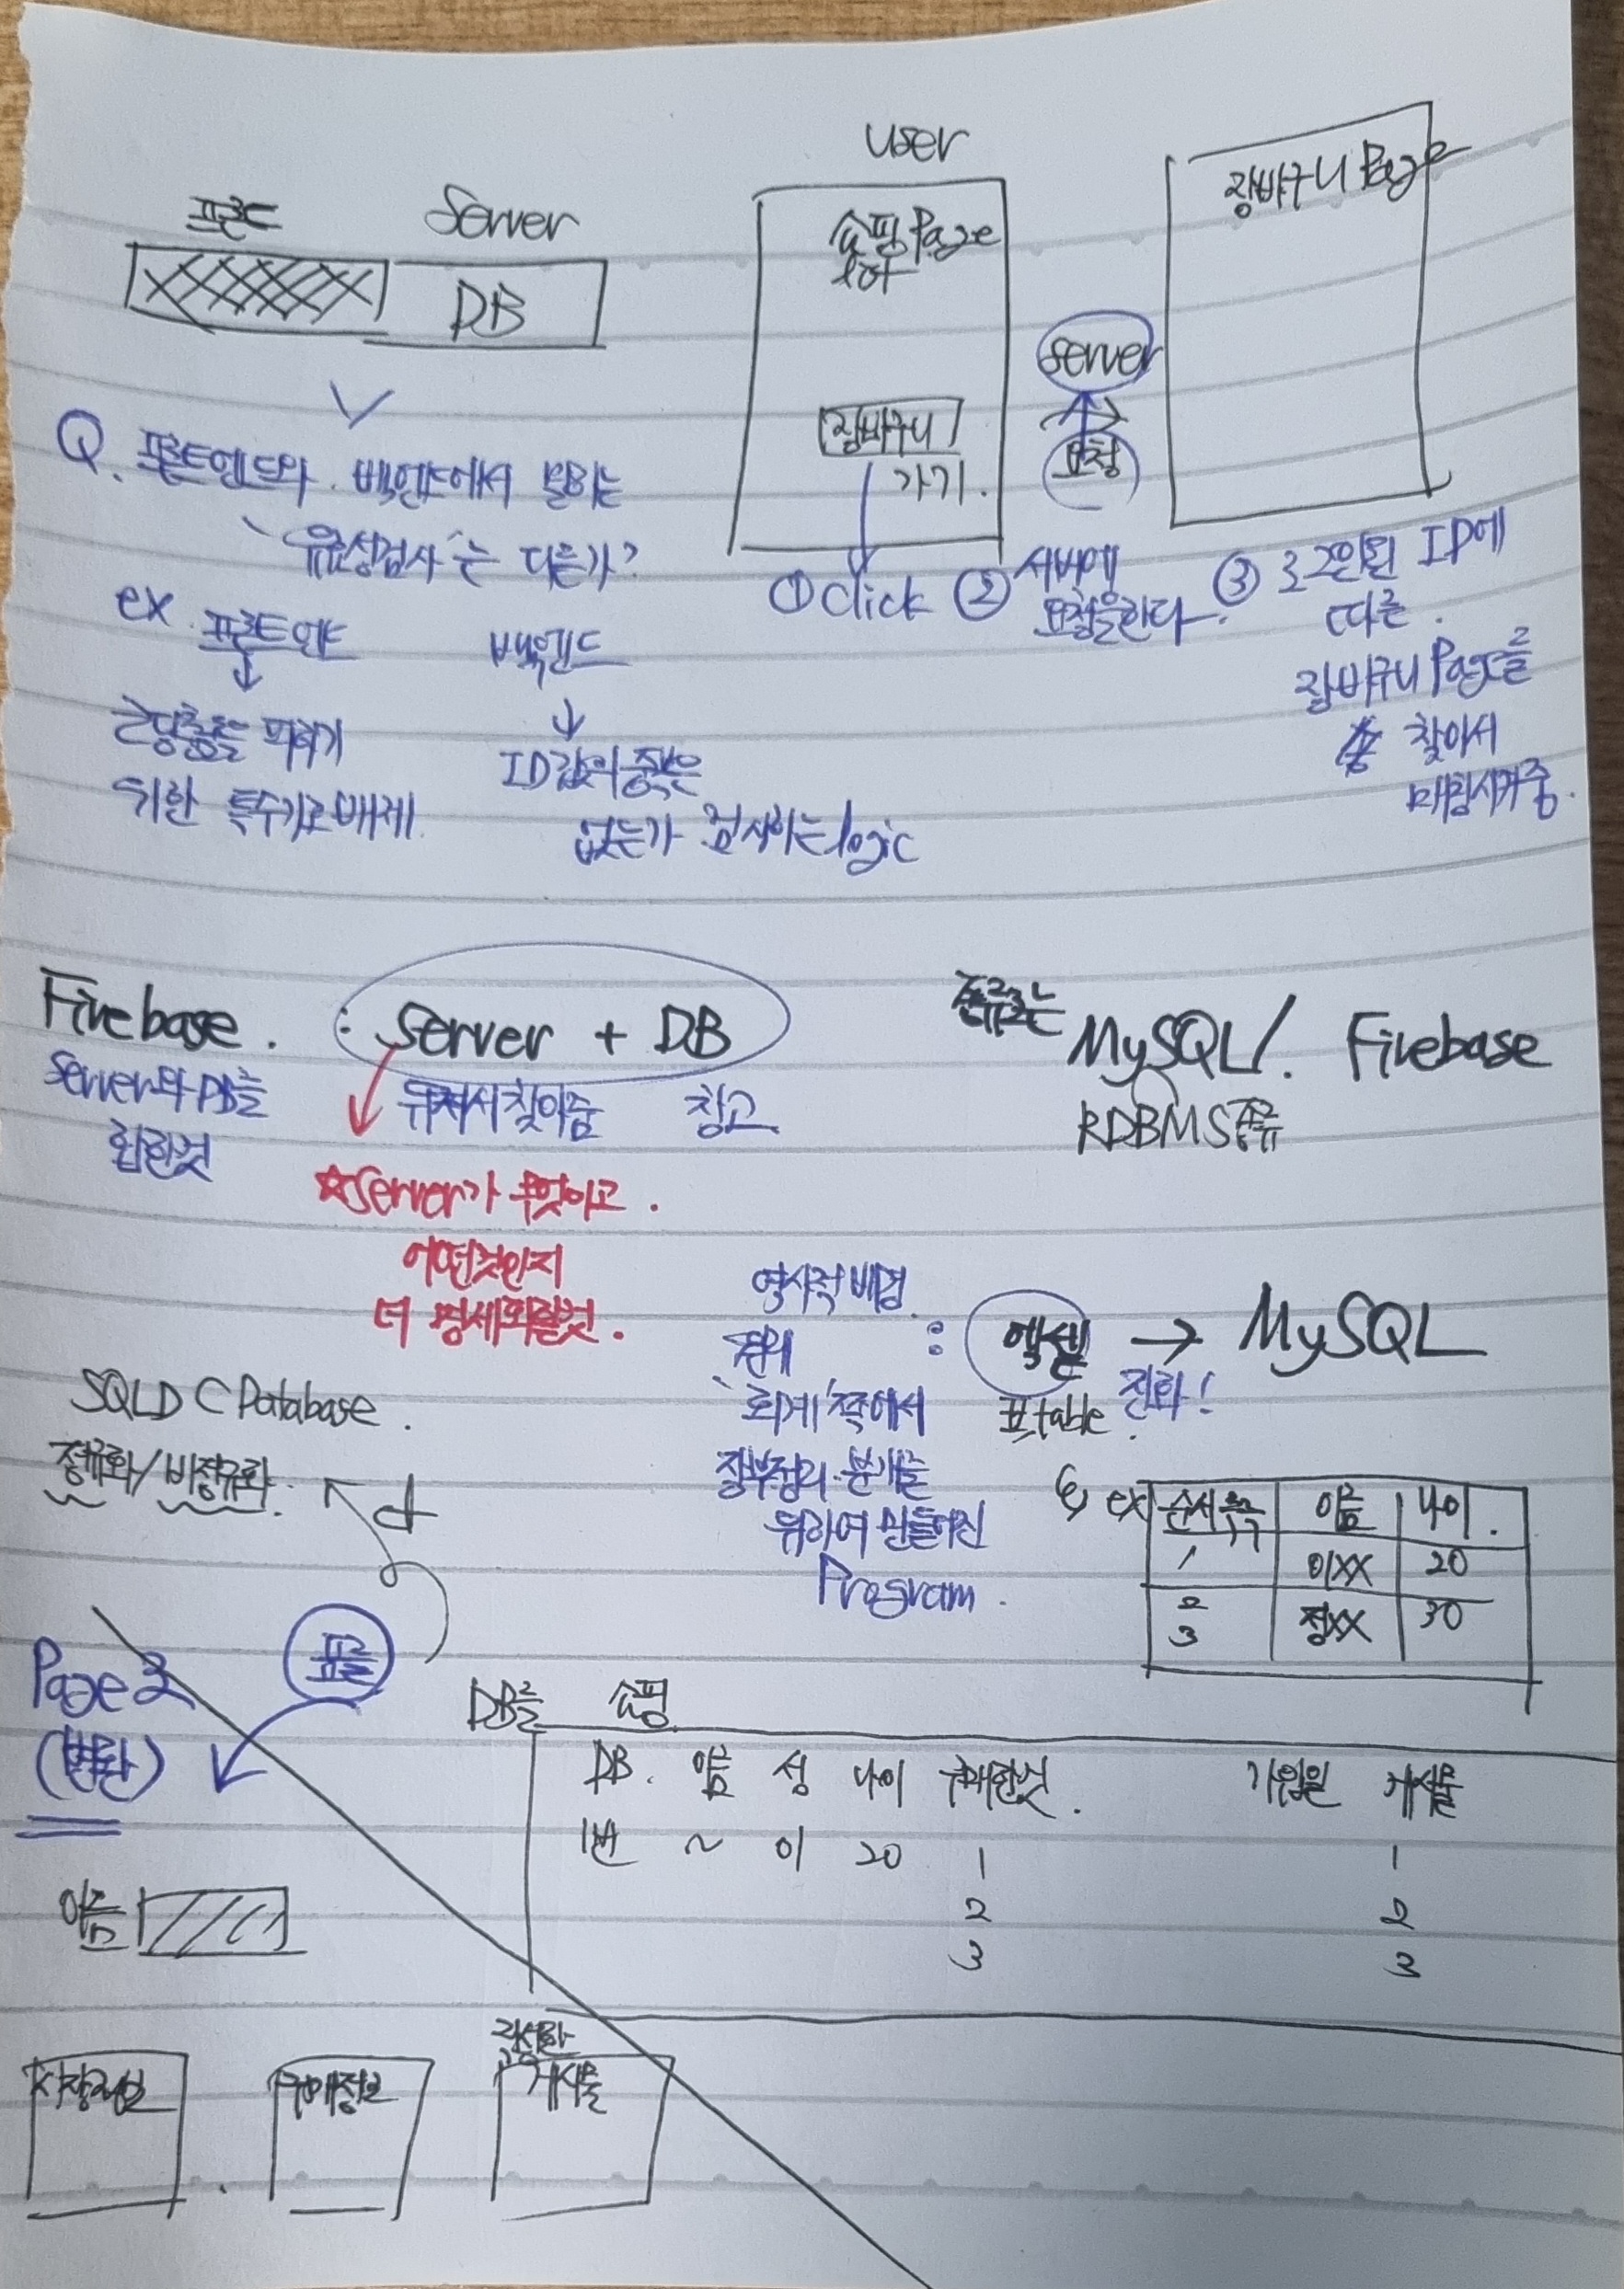 프론트
Server
DB
user
쇼핑Page
장바구니
가기.
server
요청
장바구니 Page
① Click
② 서버에
요청을한다.
③ 로그인된 ID에
따른.
장바구니 Page를
찾아서
매칭시켜줌.
Q. 프론트엔드와 백엔드에서 말하는
'유효성검사'는 다른가?
ex. 프론트엔드
↓
위한 특수기호배제
백엔드
↓
ID값의 중복은
없는가 검사하는logic
Firebase. : Server + DB
Server와 DB를
합한것
찾아줌 창고
☆Server가 무엇이고.
어떤것인지
더 명세화할것.
종류로는
MySQL/. Firebase
RDBMS종류
역사적 배경.
'회계'쪽에서
장부정리.분개를
위하여 만들어진
Program.
: 엑셀 → MySQL
표table. 진화!
ex
순서 이름 나이.
1 이XX 20
2
3 정XX 30
SQLD C Database.
정규화/비정규화.
표를
Page 2
이름
구매정보
작성한
게시물
DB를 쇼핑
DB. 이름 성 나이 구매한것. 가입일 게시물
1번 ~ 이 20 1 1
2 2
3 3